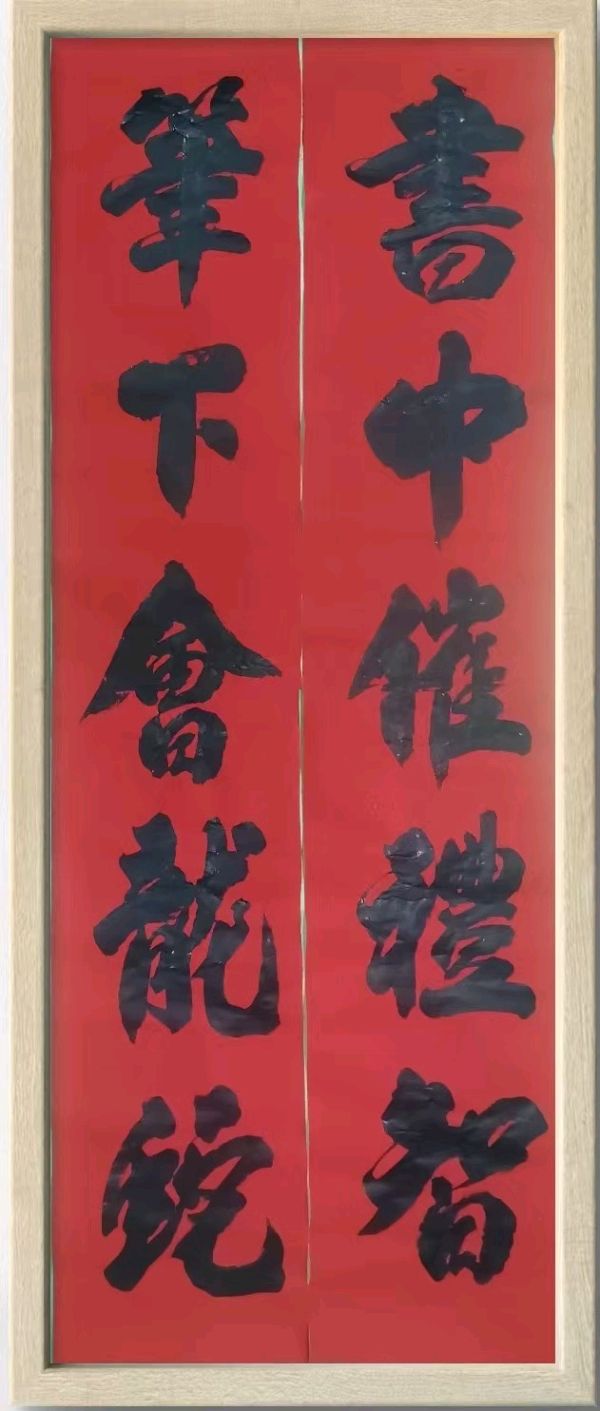 書中催禮智
筆下會龍蛇